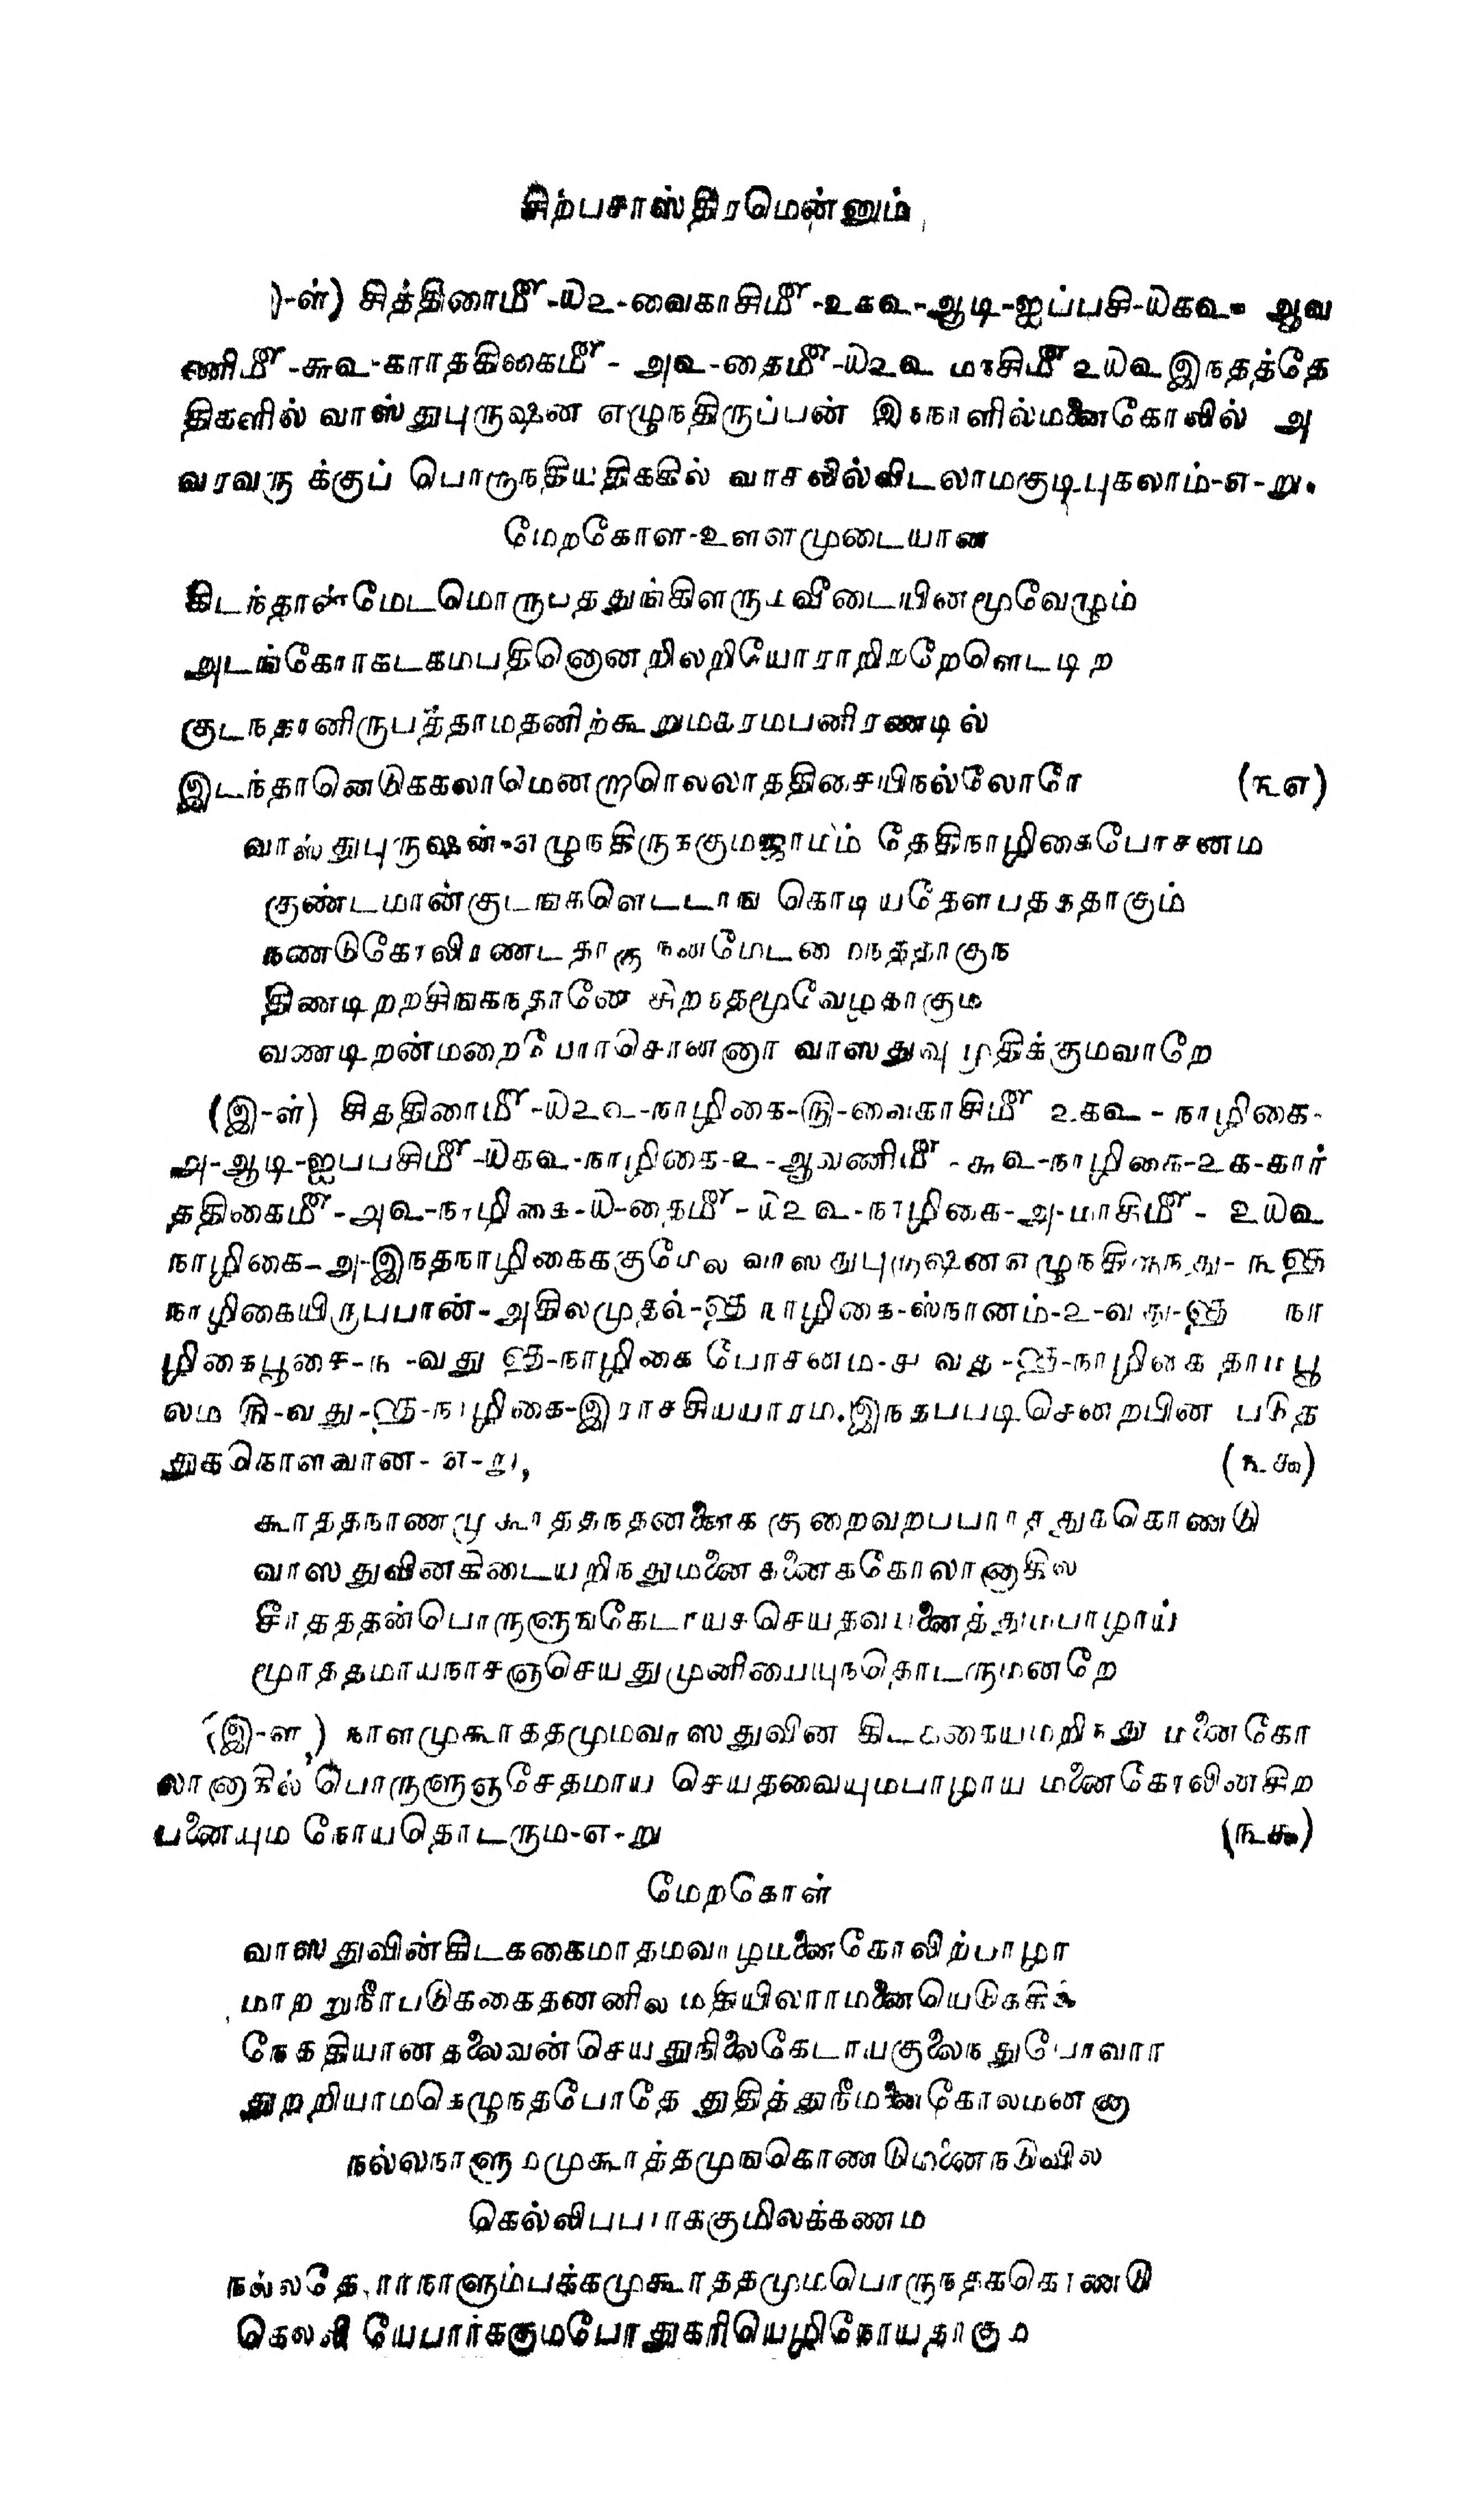 சிற்பசாஸ்திரமென்னும்
(இ-ள்) சித்திரைமீ௴-௰௨-வைகாசிமீ௴-௨௧௨-ஆடி-ஐப்பசி-௰௧௨- ஆவ
ணிமீ௴-௬௨-காாததிகைமீ௴- ௮௨-தைமீ௴-௰௨௨ மாசிமீ௴ ௨௰௨ இநதத்தே
திகளில் வாஸ்துபுருஷன எழுநதிருப்பன் இநநாளில்மனைகோலில் அ
வரவருக்குப் பொருநதியதிககில் வாசலில்விடலாமகுடிபுகலாம்-எ-று.
மேறகோள-உளளமுடையான
கிடந்தான்மேடமொருபததுங்கிளருமவிடையினமூவேழும்
அடங்கோாகடகமபதினொனறிலறியோராறிறறேளெடடிற
குடநதானிருபத்தாமதனிற்கூறுமகரமபனிரணடில்
இடந்தானெடுககலாமெனறாொலலாததிசையிநல்லோரே (௩௭)
வாஸ்துபுருஷன்-எழுநதிருககுமஜாமம் தேதிநாழிகைபோசனம
குண்டமான்குடஙகளெடடாங கொடியதேளபததாகும்
நண்டுகோலிரணடதாகு
திணடிறறசிஙகநதானே சிறநதமூவேழகாகும
வணடிறன்மறையோாசொனனா வாஸதுவு முதிக்குமவாறே
(இ-ள்) சிததிரைமீ௴-௰௨௨-நாழிகை-௫-வைகாசிமீ௴ ௨௧௨ - நாழிகை-
௮-ஆடி-ஐபபசிமீ௴-௰௧௨-நாழிகை-௨-ஆவணிமீ௴ - ௬௨-நாழிகை-௨௧-கார்
ததிகைமீ௴-௮௨-நாழிகை-௰-தைமீ௴-௰௨௨-நாழிகை-௮-மாசிமீ௴- ௨௰௨
நாழிகை-௮-இநதநாழிகைககுமேல வாஸதுபுருஷனஎழுநதிருநது- ௩௵
நாழிகையிருபபான்-அகிலமுதல்-௵ நாழிகை-ஸ்நானம்-௨-வது-௵ நா
ழிகைபூசை-௩-வது ௵-நாழிகை போசனம-௪ வது-௵-நாழிகை தாமபூ
லம ௫-வது-௵-நாழிகை-இராசசியபாரம.இநதபபடிசெனறபின படுத
துககொளவான- எ-று, (௩௮)
கூாததநாணமு கூாததநதனனைக குறைவறபபாாததுககொணடு
வாஸதுவினகிடையறிநதுமனைகனைககோலானாகில
சீாதததன்பொருளுஙகேடாயசசெயதவமனைத்துமபாழாய்
மூாததமாயநாசஞசெயதுமுனிபையுநதொடருமனறே
(இ-ள) காளமுகூாததமுமவாஸதுவின கிடககையமறிநது மனைகோ
லானாகில் பொருளுஞசேதமாய செயதவையுமபாழாய மனைகோலினகிற
பனையும நோயதொடரும-எ-று (௩௯)
மேறகொள்
வாஸதுவின்கிடககைமாதமவாழமனைகோலிற்பாழா
மாறறுநீாபடுககைதனனில மதியிலாாமனையெடுககிக்
நேகதியானதலைவன்செயதுநிலைகேடாயகுலைநதுபோவாா
துறறியாமகெழுநதபோதே துதித்துநீமனைகோலமனனா
நல்லநாளுமமுகூாத்தமுஙகொணடுமனைநடுவில
கெல்லிபபாாககுமிலக்கணம
நல்லதோாநாளும்பக்கமுகூாததமுமபொருநதககொணடு
கெலலியேபார்ககுமபோதுகரியெழிநோயதாகும